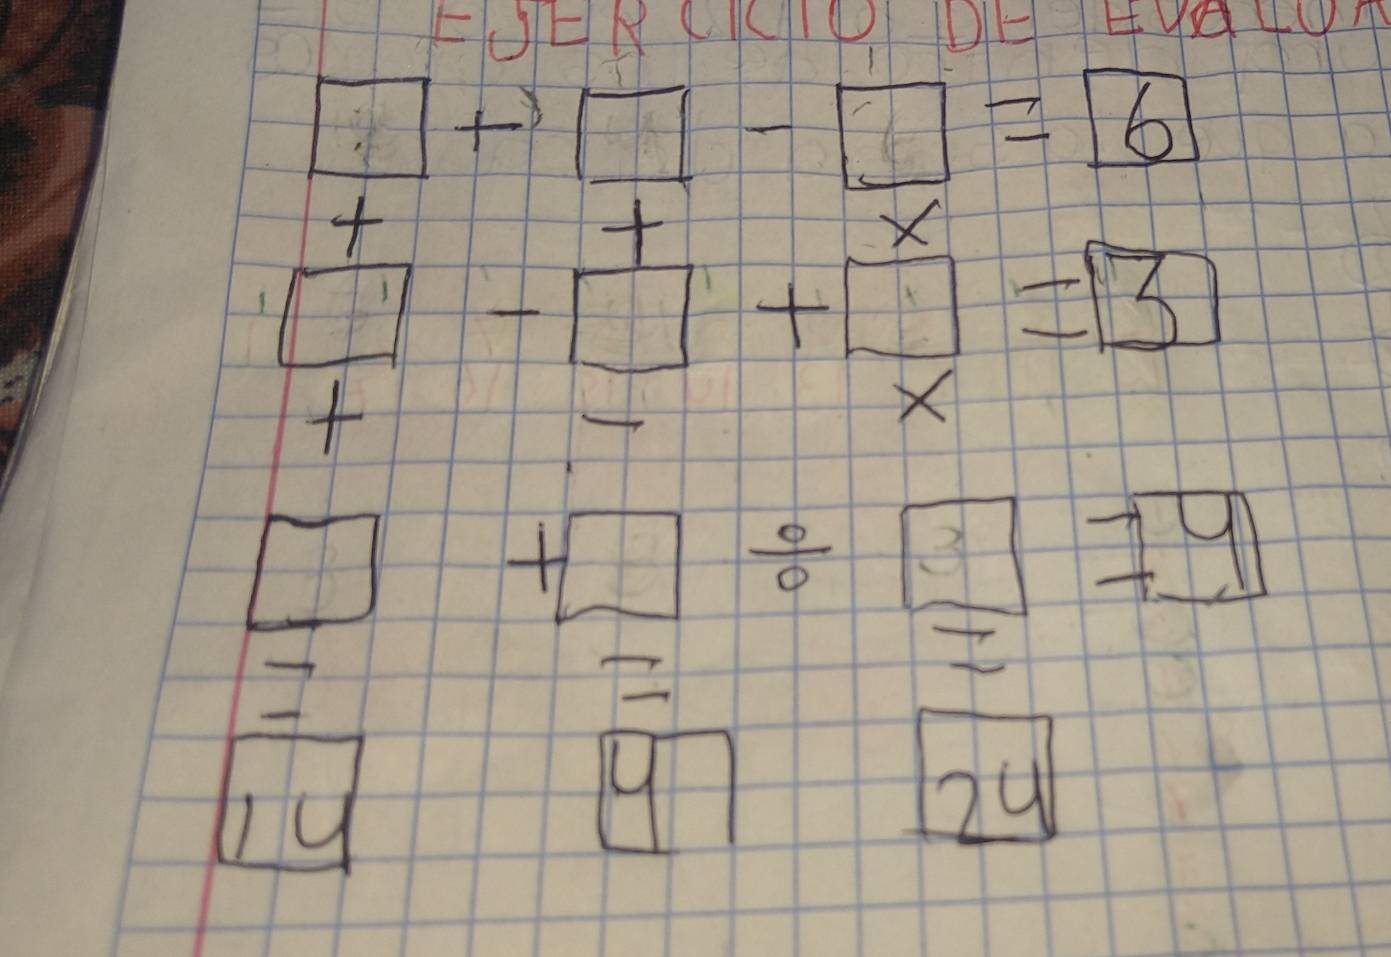 EJERCICIO DE EVALUA
+ - = 6
+ + ×
- + = 3
+ - ×
+ ÷ = 4
= = =
14 4 24